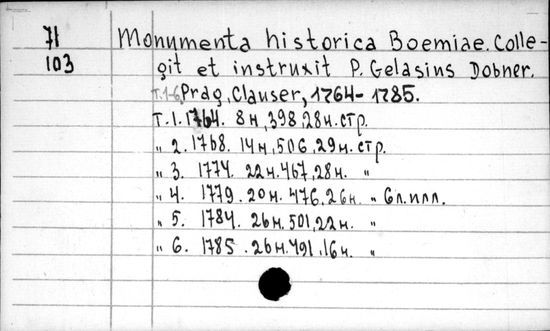 71
103
Monumenta historica Boemiae. Colle-
git et instruxit P. Gelasius Dobner.
T.1-6, Prag, Clauser, 1764-1785.
Т.1. 1764. 8н, 398, 28н. стр.
„ 2. 1768. 14н, 506, 29н. стр.
„ 3. 1774. 22н. 467, 28н. „
„ 4. 1779. 20н. 476, 26н. „ 6л. илл.
„ 5. 1784. 26н. 501, 22н. „
„ 6. 1785. 26н. 491, 16н. „